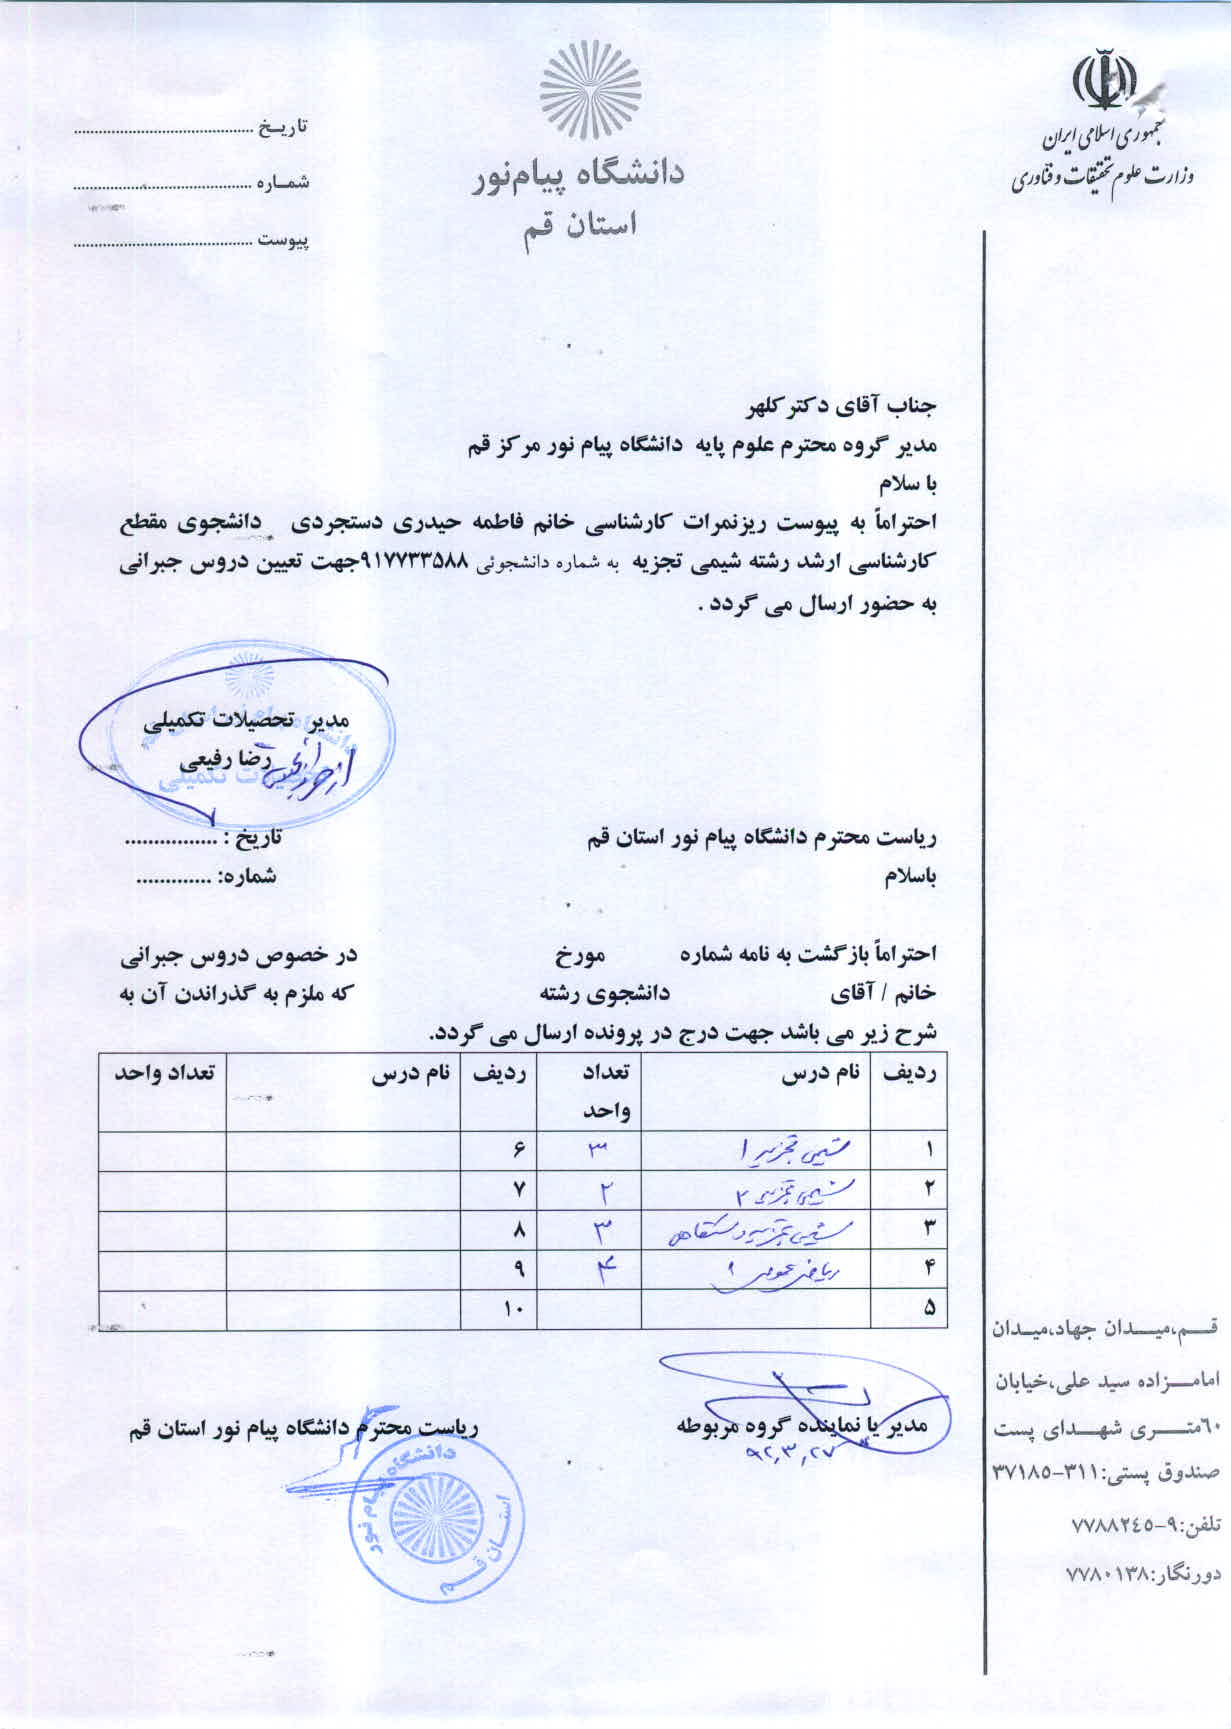 جمهوری اسلامی ایران
وزارت علوم تحقیقات و فناوری
دانشگاه پیام‌نور
استان قم
تاریـخ ............................................
شمـاره ............................................
پیوست ............................................
جناب آقای دکتر کلهر
مدیر گروه محترم علوم پایه دانشگاه پیام نور مرکز قم
با سلام
احتراماً به پیوست ریزنمرات کارشناسی خانم فاطمه حیدری دستجردی دانشجوی مقطع
کارشناسی ارشد رشته شیمی تجزیه به شماره دانشجوئی ۹۱۷۷۳۳۵۸۸جهت تعیین دروس جبرانی
به حضور ارسال می گردد .
مدیر تحصیلات تکمیلی
رضا رفیعی
دانشگاه پیام نور استان قم
تحصیلات تکمیلی
ریاست محترم دانشگاه پیام نور استان قم تاریخ : ................
باسلام شماره: .............
احتراماً بازگشت به نامه شماره مورخ در خصوص دروس جبرانی
خانم / آقای دانشجوی رشته که ملزم به گذراندن آن به
شرح زیر می باشد جهت درج در پرونده ارسال می گردد.
ردیف نام درس تعداد واحد ردیف نام درس تعداد واحد
۱ شیمی تجزیه ۱ ۳ ۶
۲ شیمی تجزیه ۲ ۲ ۷
۳ شیمی تجزیه دستگاهی ۳ ۸
۴ ریاضی عمومی ۱ ۴ ۹
۵ ۱۰
مدیر یا نماینده گروه مربوطه ریاست محترم دانشگاه پیام نور استان قم
۹۲,۳,۲۷
دانشگاه پیام نور
استـان قـم
قـــم،میـــدان جهاد،میـدان
امامـــزاده سید علی،خیابان
۶۰متـــری شهـــدای پست
صندوق پستی:۳۱۱-۳۷۱۸۵
تلفن:۹-۷۷۸۸۲٤٥
دورنگار:۷۷۸۰۱۳۸